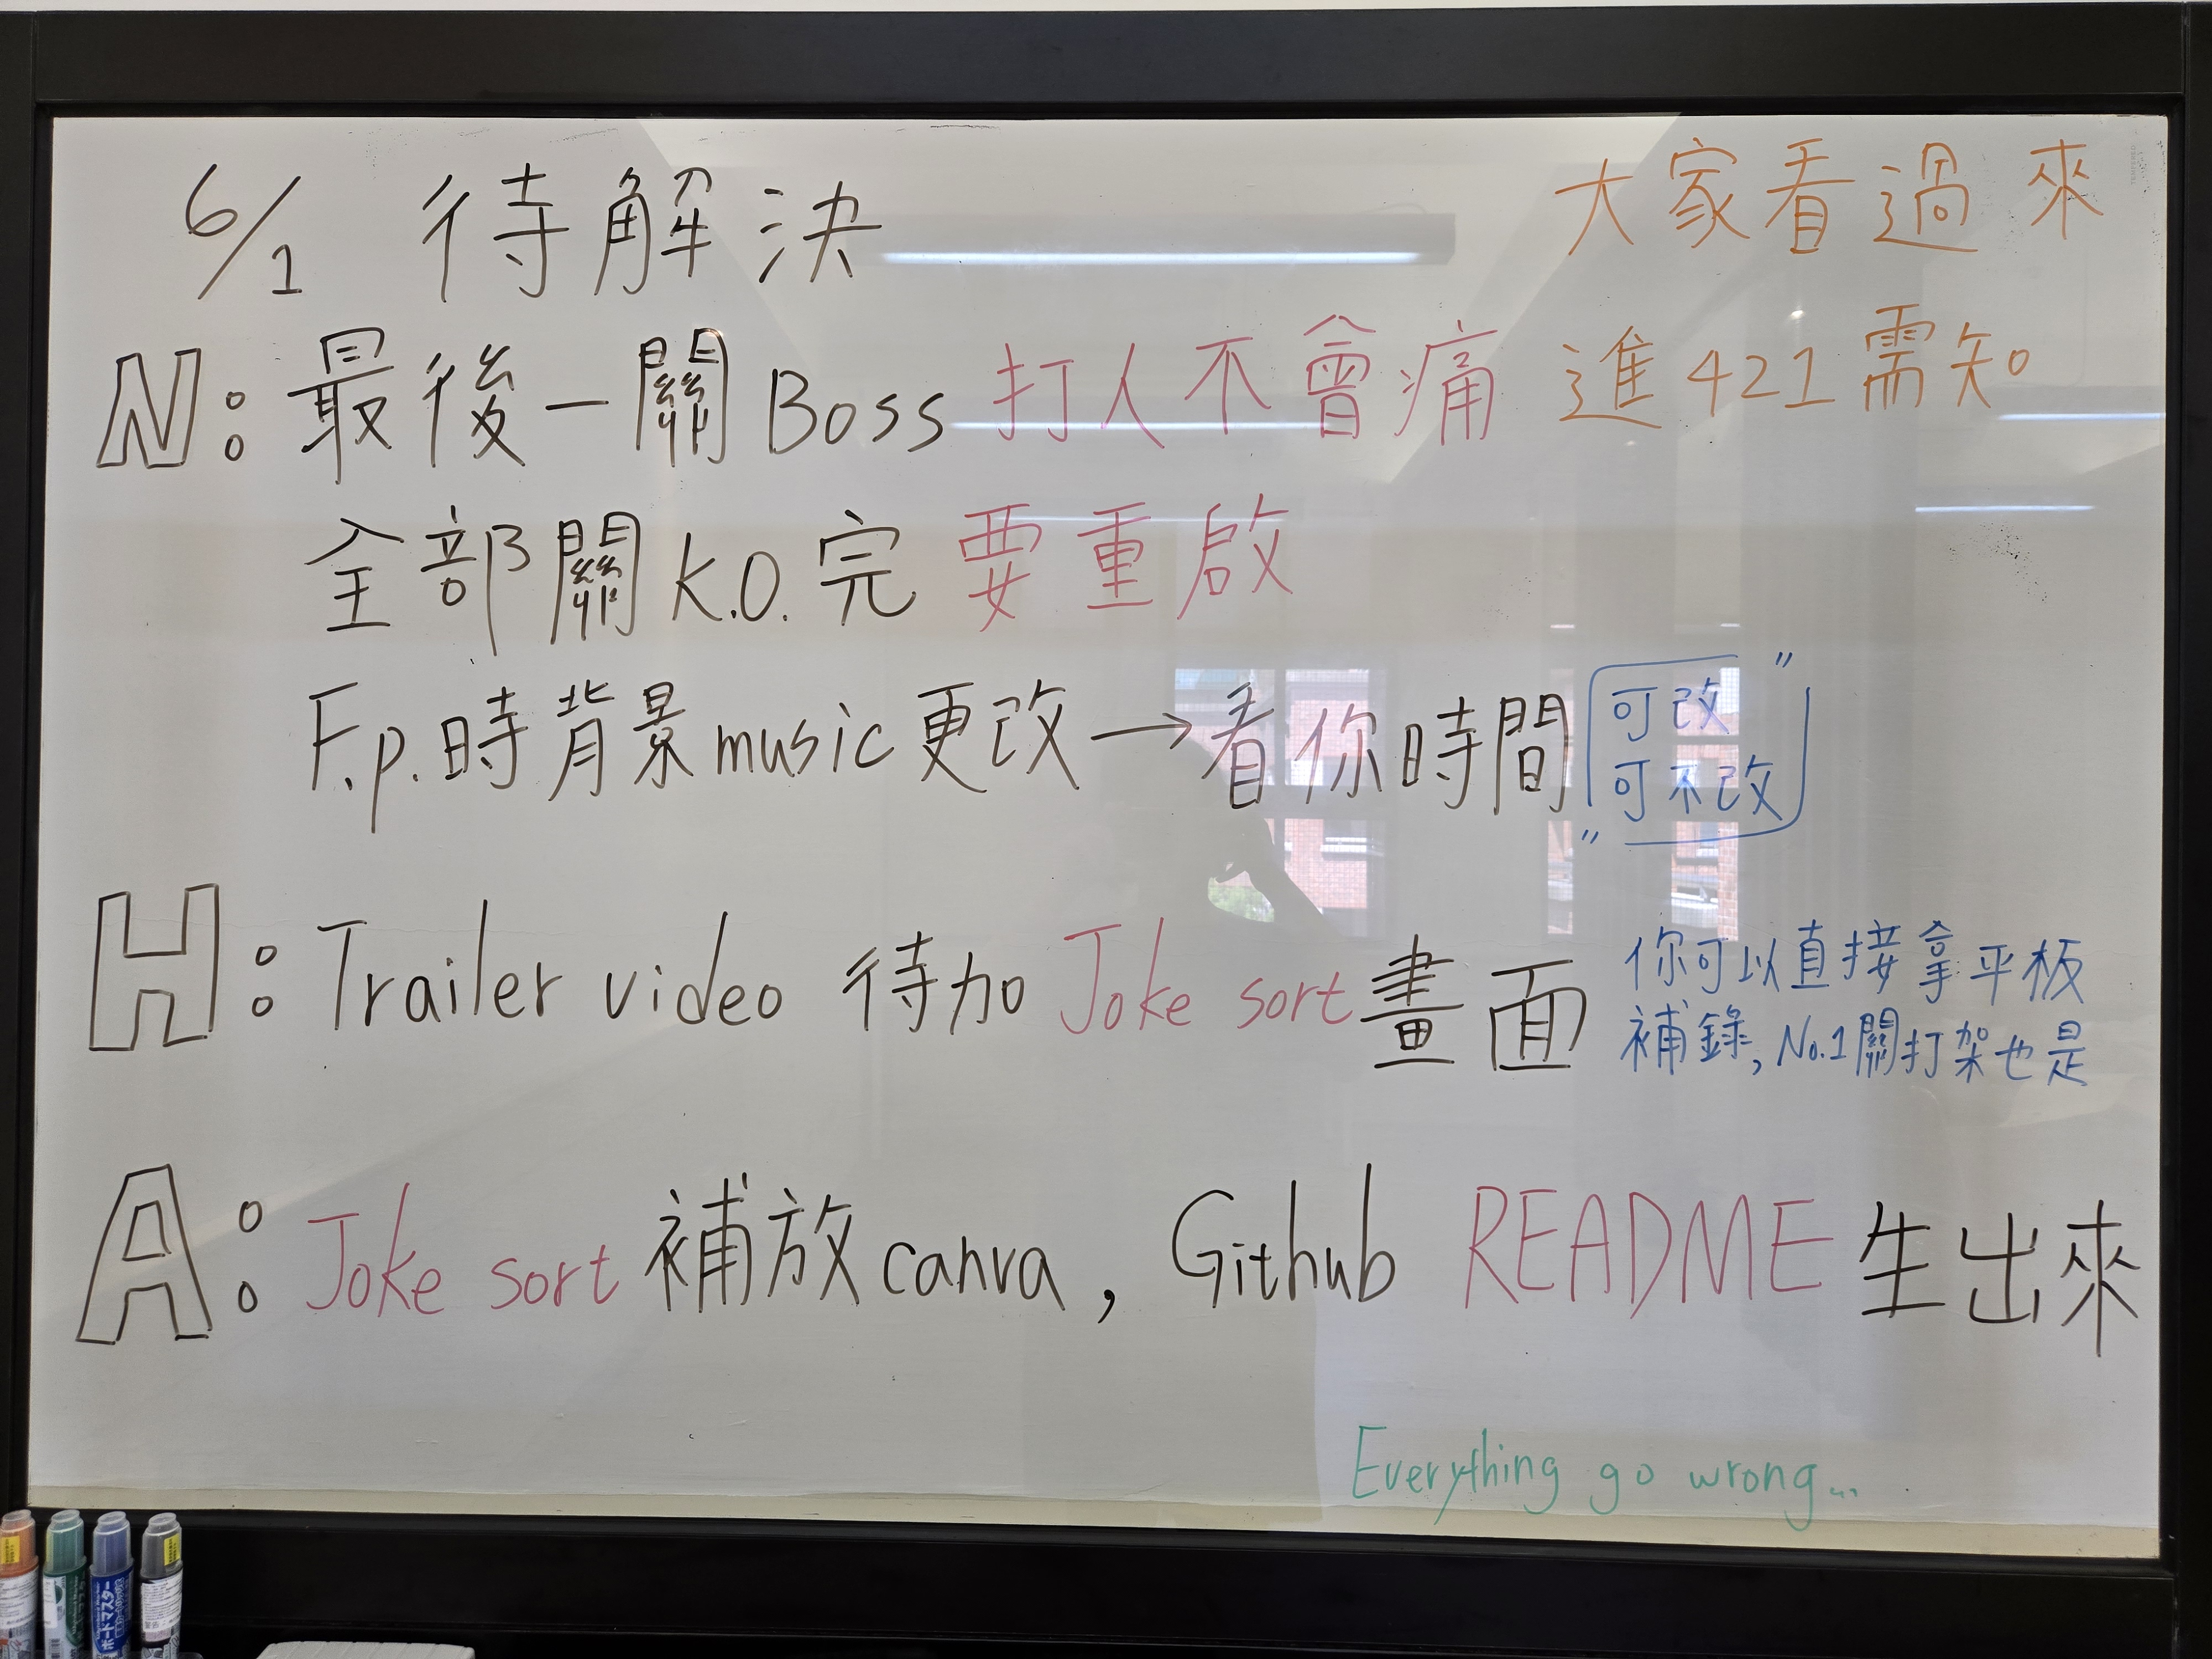 6/1 待解決
大家看過來
進421需知。
N：最後一關Boss 打人不會痛
全部關K.O.完 要重啟
F.p.時背景music更改→看你時間
可改
可不改
H：Trailer video 待加 Joke sort 畫面
你可以直接拿平板
補錄, No.1關打架也是
A：Joke sort 補放canva, Github README 生出來
Everything go wrong...
ボードマスター